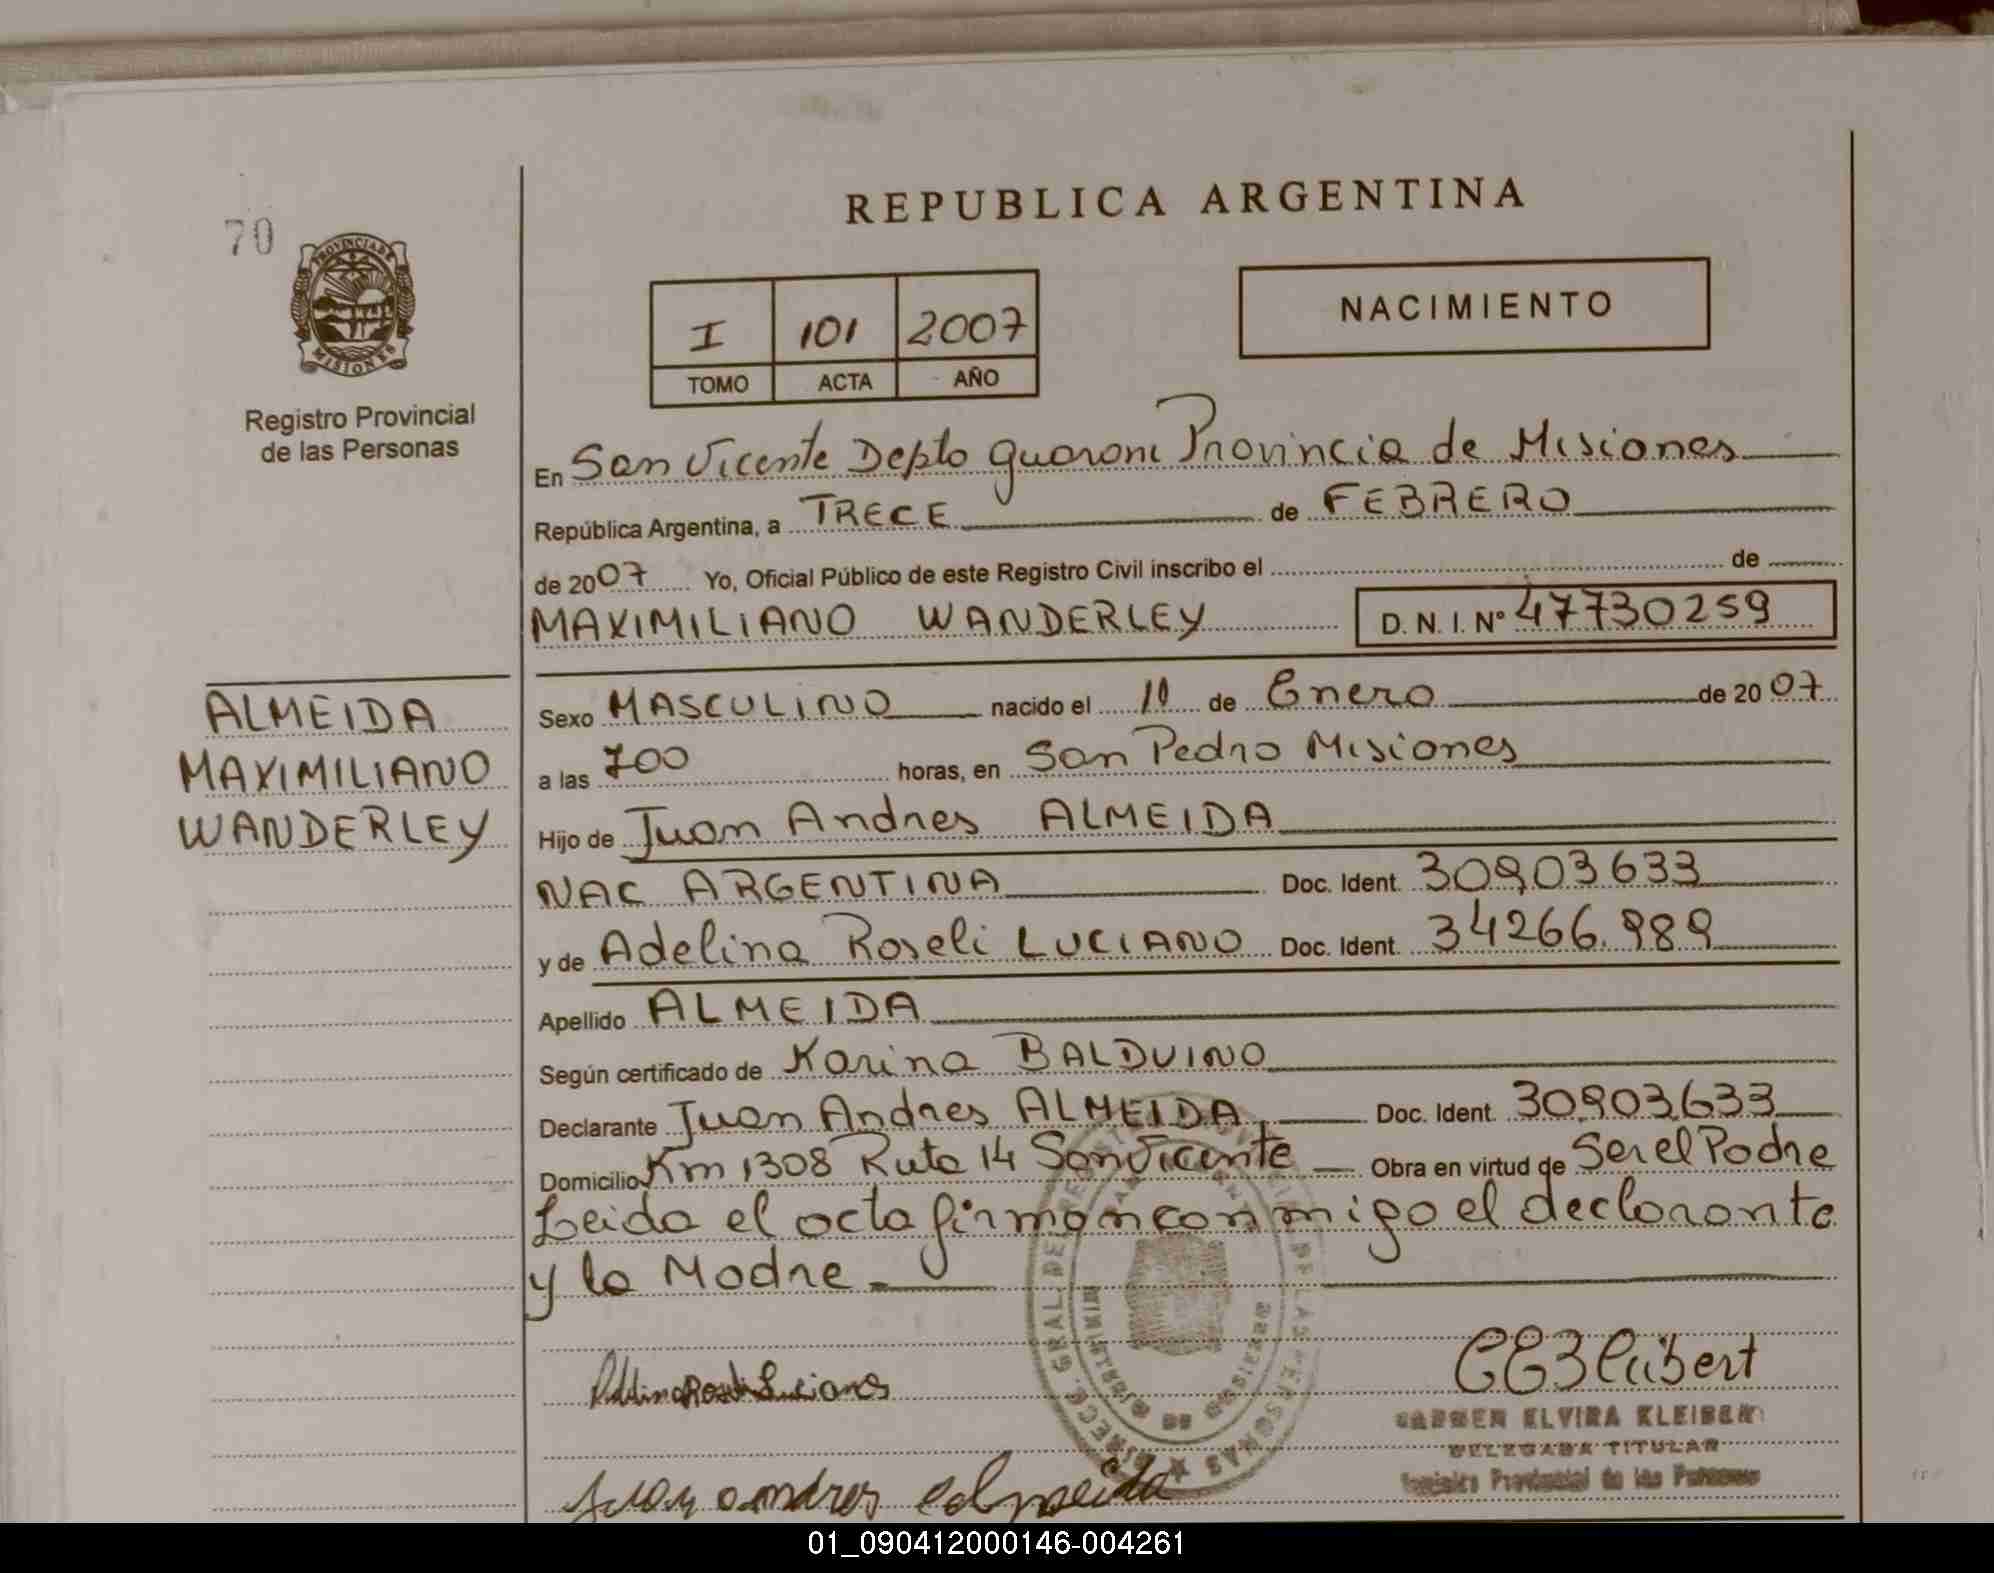 70
PROVINCIA DE
MISIONES
Registro Provincial
de las Personas
REPUBLICA ARGENTINA
I 101 2007
TOMO ACTA AÑO
NACIMIENTO
En San Vicente Depto Guarani Provincia de Misiones
República Argentina, a TRECE de FEBRERO
de 2007 Yo, Oficial Público de este Registro Civil inscribo el de
MAXIMILIANO WANDERLEY D.N.I. Nº 47730259
ALMEIDA
MAXIMILIANO
WANDERLEY
Sexo MASCULINO nacido el 10 de Enero de 2007
a las 700 horas, en San Pedro Misiones
Hijo de Juan Andres ALMEIDA
NAC ARGENTINA Doc. Ident. 30903633
y de Adelina Roseli LUCIANO Doc. Ident. 34266.989
Apellido ALMEIDA
Según certificado de Karina BALDUINO
Declarante Juan Andres ALMEIDA Doc. Ident. 30.903.633
Domicilio Km 1308 Ruta 14 San Vicente Obra en virtud de Ser el Padre
Leida el acta firman conmigo el declarante
y la Madre
Adelina Roseli Luciano
CARMEN ELVIRA KLEIBER
DELEGADA TITULAR
Registro Provincial de las Personas
Juan andres almeida
01_090412000146-004261